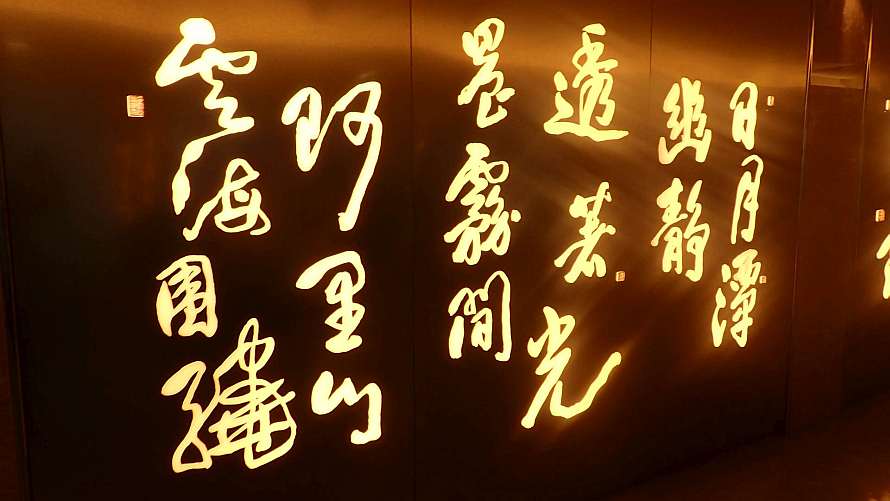 日月潭
幽靜
透著光
晨霧間
阿里山
雲海圍繞